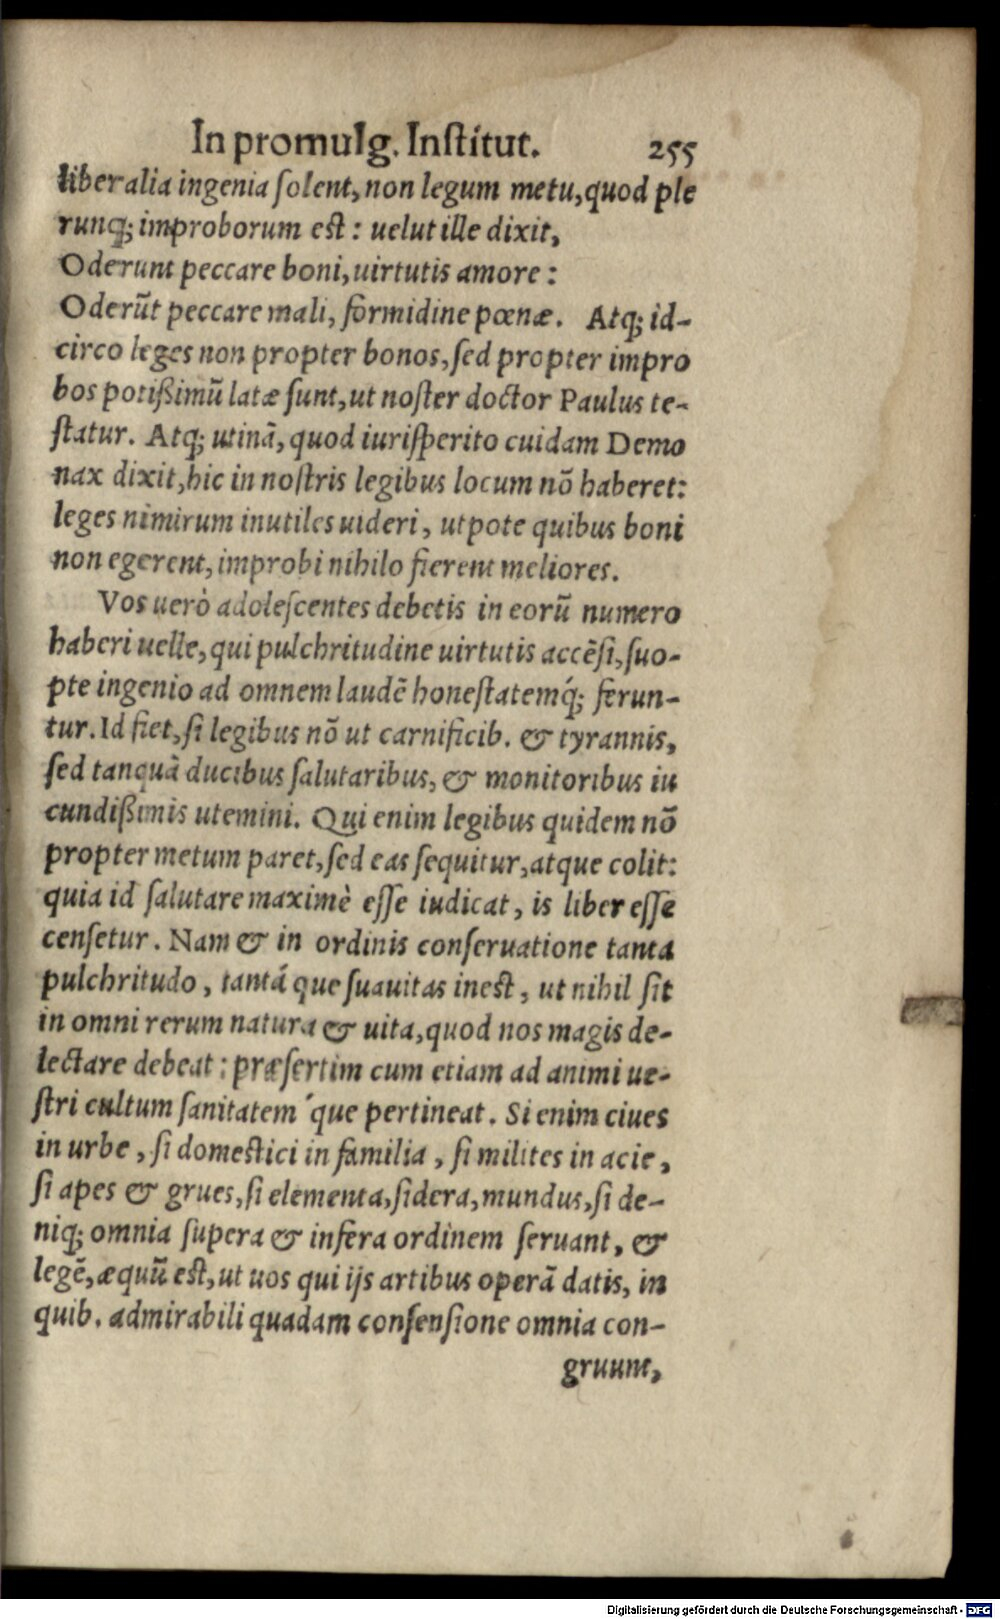 In promulg. Institut. 255
liberalia ingenia ſolent, non legum metu, quod ple
runq; improborum est: uelut ille dixit,
Oderunt peccare boni, uirtutis amore:
Oderūt peccare mali, formidine pœnæ. Atq; id-
circo leges non propter bonos, ſed propter impro
bos potißimū latæ ſunt, ut noſter doctor Paulus te-
ſtatur. Atq; utinā, quod iuriſperito cuidam Demo
nax dixit, hic in noſtris legibus locum nō haberet:
leges nimirum inutiles uideri, utpote quibus boni
non egerent, improbi nihilo fierent meliores.
Vos uerò adoleſcentes debetis in eorū numero
haberi uelle, qui pulchritudine uirtutis accēſi, ſuo-
pte ingenio ad omnem laudē honeſtatemq́; ferun-
tur. Id fiet, ſi legibus nō ut carnificib. & tyrannis,
ſed tanquā ducibus ſalutaribus, & monitoribus iu
cundißimis utemini. Qui enim legibus quidem nō
propter metum paret, ſed eas ſequitur, atque colit:
quia id ſalutare maximè eſſe iudicat, is liber eſſe
cenſetur. Nam & in ordinis conſeruatione tanta
pulchritudo, tantá que ſuauitas inest, ut nihil ſit
in omni rerum natura & uita, quod nos magis de-
lectare debeat: præſertim cum etiam ad animi ue-
ſtri cultum ſanitatem ́que pertineat. Si enim ciues
in urbe, ſi domestici in familia, ſi milites in acie,
ſi apes & grues, ſi elementa, ſidera, mundus, ſi de-
niq; omnia ſupera & infera ordinem ſeruant, &
legē, æquū est, ut uos qui ijs artibus operā datis, in
quib. admirabili quadam conſenſione omnia con-
gruunt,
Digitalisierung gefördert durch die Deutsche Forschungsgemeinschaft - DFG